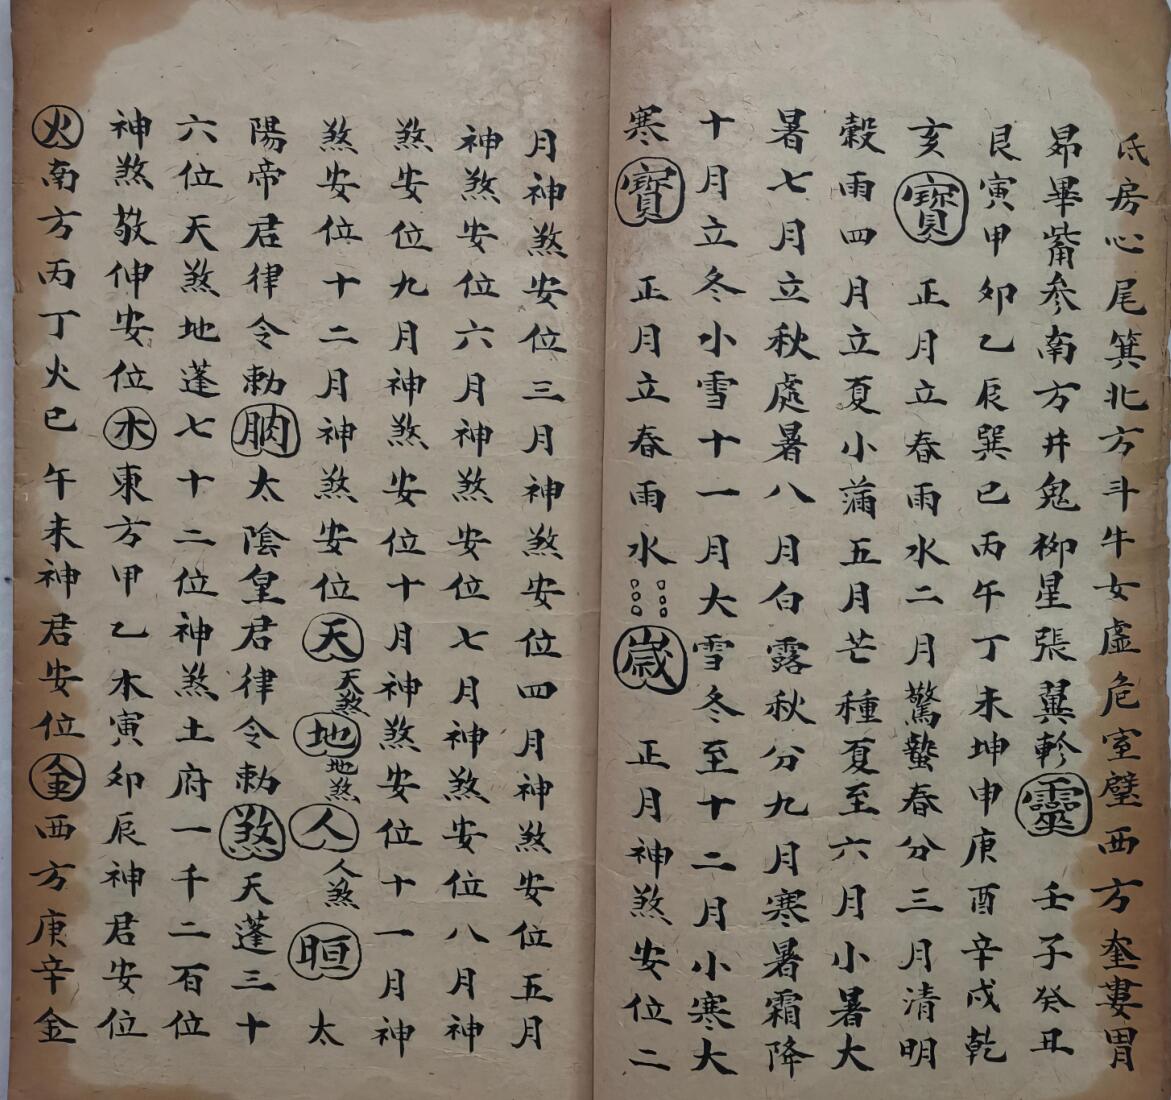 氐房心尾箕北方斗牛女虛危室壁西方奎婁胃
昴畢觜參南方井鬼柳星張翼軫靈壬子癸丑
艮寅甲卯乙辰巽巳丙午丁未坤申庚酉辛戌乾
亥寶正月立春雨水二月驚蟄春分三月清明
穀雨四月立夏小滿五月芒種夏至六月小暑大
暑七月立秋處暑八月白露秋分九月寒暑霜降
十月立冬小雪十一月大雪冬至十二月小寒大
寒寶正月立春雨水歲正月神煞安位二
月神煞安位三月神煞安位四月神煞安位五月
神煞安位六月神煞安位七月神煞安位八月神
煞安位九月神煞安位十月神煞安位十一月神
煞安位十二月神煞安位天天煞地地煞人人煞晅太
陽帝君律令勅朒太陰皇君律令勅煞天蓬三十
六位天煞地蓬七十二位神煞土府一千二百位
神煞敬伸安位木東方甲乙木寅卯辰神君安位
火南方丙丁火巳午未神君安位金西方庚辛金